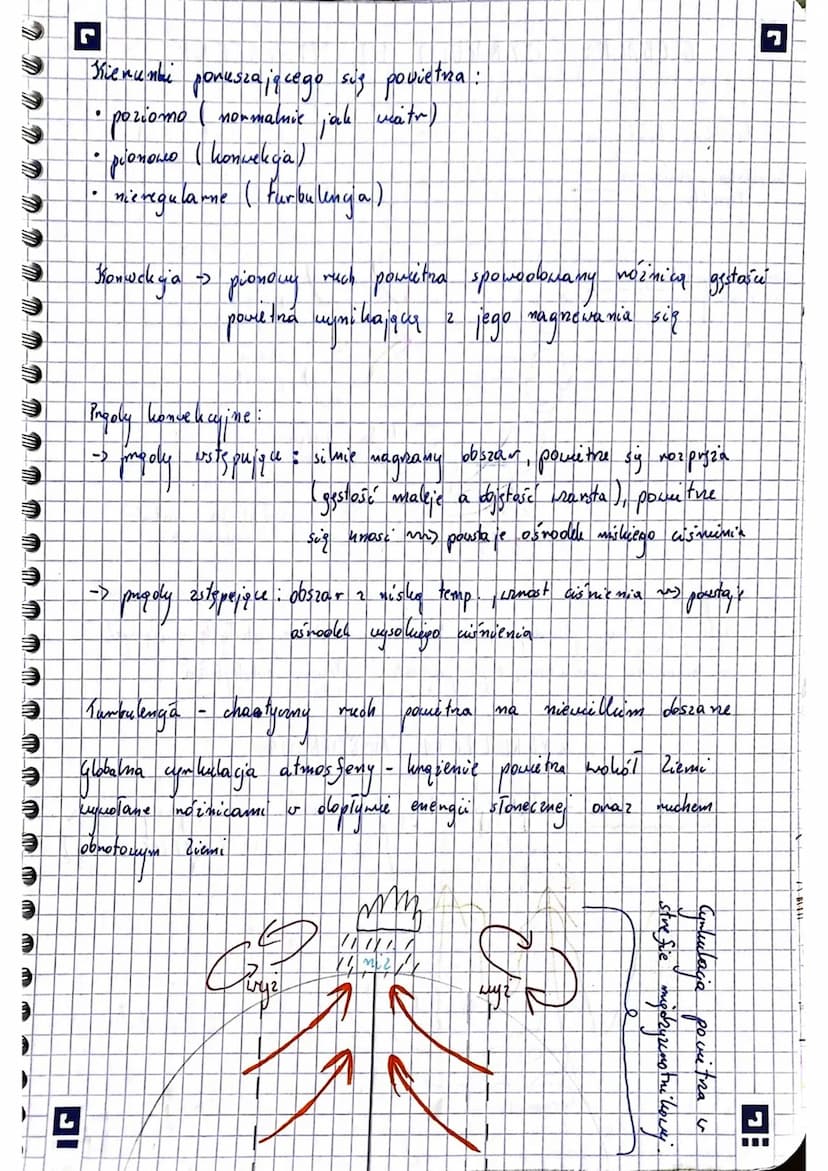 Kierunki poruszającego się powietrza :
• poziomo ( normalnie jak wiatr)
• pionowo ( konwekcja)
• nieregularne ( turbulencja )
Konwekcja -> pionowy ruch powietrza spowodowany różnicą gęstości
powietrza wynikającą z jego nagrzewania się
Prądy konwekcyjne :
-> prądy wstępujące : silnie nagrzany obszar, powietrze się rozpręża
(gęstość maleje a objętość wzrasta ), powietrze
się unosi ~> powstaje ośrodek niskiego ciśnienia
-> prądy zstępujące : obszar z niską temp. , wzrost ciśnienia ~> powstaje
ośrodek wysokiego ciśnienia
Turbulencja - chaotyczny ruch powietrza na niewielkim obszarze
Globalna cyrkulacja atmosfery - krążenie powietrza wokół Ziemi
wywołane różnicami w dopływie energii słonecznej oraz ruchem
obrotowym Ziemi
niż
wyż
wyż
Cyrkulacja powietrza w
strefie międzyzwrotnikowej.